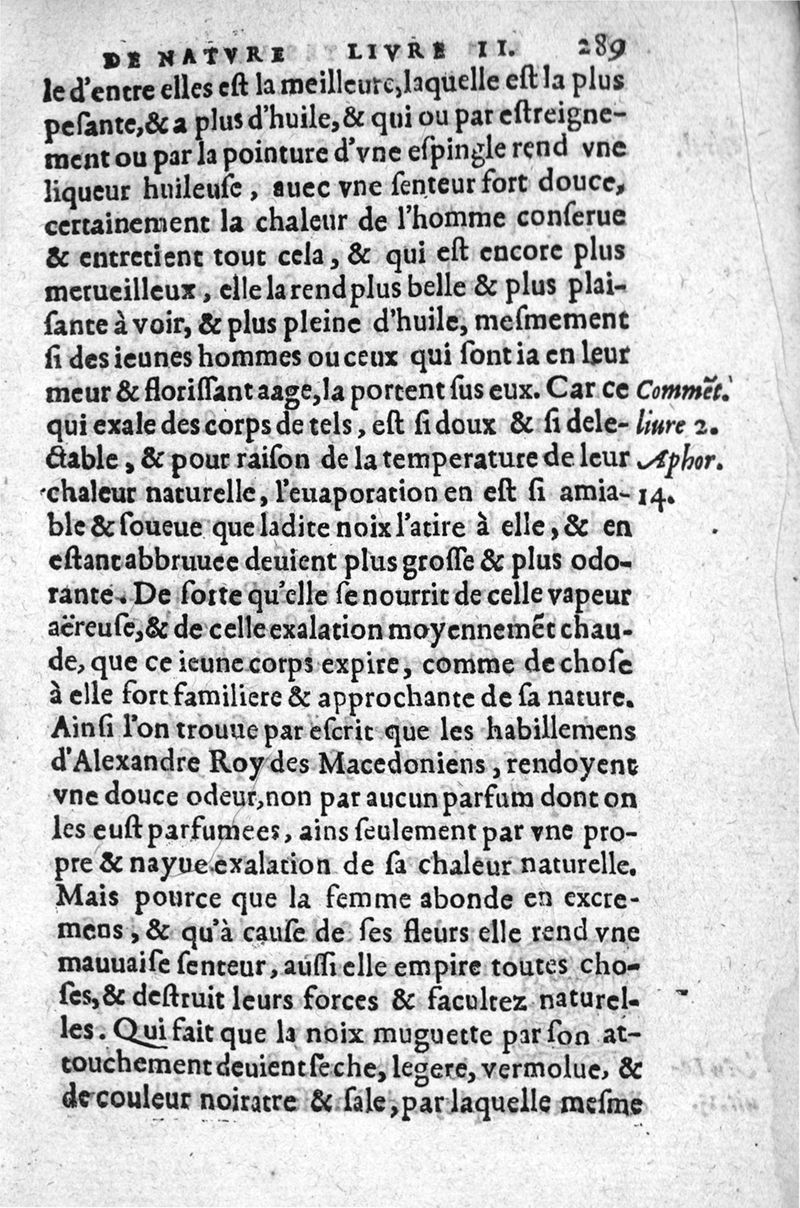 DE NATVRE LIVRE II. 289
le d'entre elles eſt la meilleure, laquelle eſt la plus
peſante, & a plus d'huile, & qui ou par eſtreigne-
ment ou par la pointure d'vne eſpingle rend vne
liqueur huileuſe, auec vne ſenteur fort douce,
certainement la chaleur de l'homme conſerue
& entretient tout cela, & qui eſt encore plus
merueilleux, elle la rend plus belle & plus plai-
ſante à voir, & plus pleine d'huile, meſmement
ſi des ieunes hommes ou ceux qui ſont ia en leur
meur & floriſſant aage, la portent ſus eux. Car ce
qui exale des corps de tels, eſt ſi doux & ſi dele-
ctable, & pour raiſon de la temperature de leur
chaleur naturelle, l'euaporation en eſt ſi amia-
ble & ſoueue que ladite noix l'atire à elle, & en
eſtant abbruuee deuient plus groſſe & plus odo-
rante. De ſorte qu'elle ſe nourrit de celle vapeur
aëreuſe, & de celle exalation moyennemēt chau-
de, que ce ieune corps expire, comme de choſe
à elle fort familiere & approchante de ſa nature.
Ainſi l'on trouue par eſcrit que les habillemens
d'Alexandre Roy des Macedoniens, rendoyent
vne douce odeur, non par aucun parfum dont on
les euſt parfumees, ains ſeulement par vne pro-
pre & nayue exalation de ſa chaleur naturelle.
Mais pource que la femme abonde en excre-
mens, & qu'à cauſe de ſes fleurs elle rend vne
mauuaiſe ſenteur, auſſi elle empire toutes cho-
ſes, & deſtruit leurs forces & facultez naturel-
les. Qui fait que la noix muguette par ſon at-
touchement deuient ſeche, legere, vermolue, &
de couleur noiratre & ſale, par laquelle meſme
Commēt.
liure 2.
Aphor.
14.